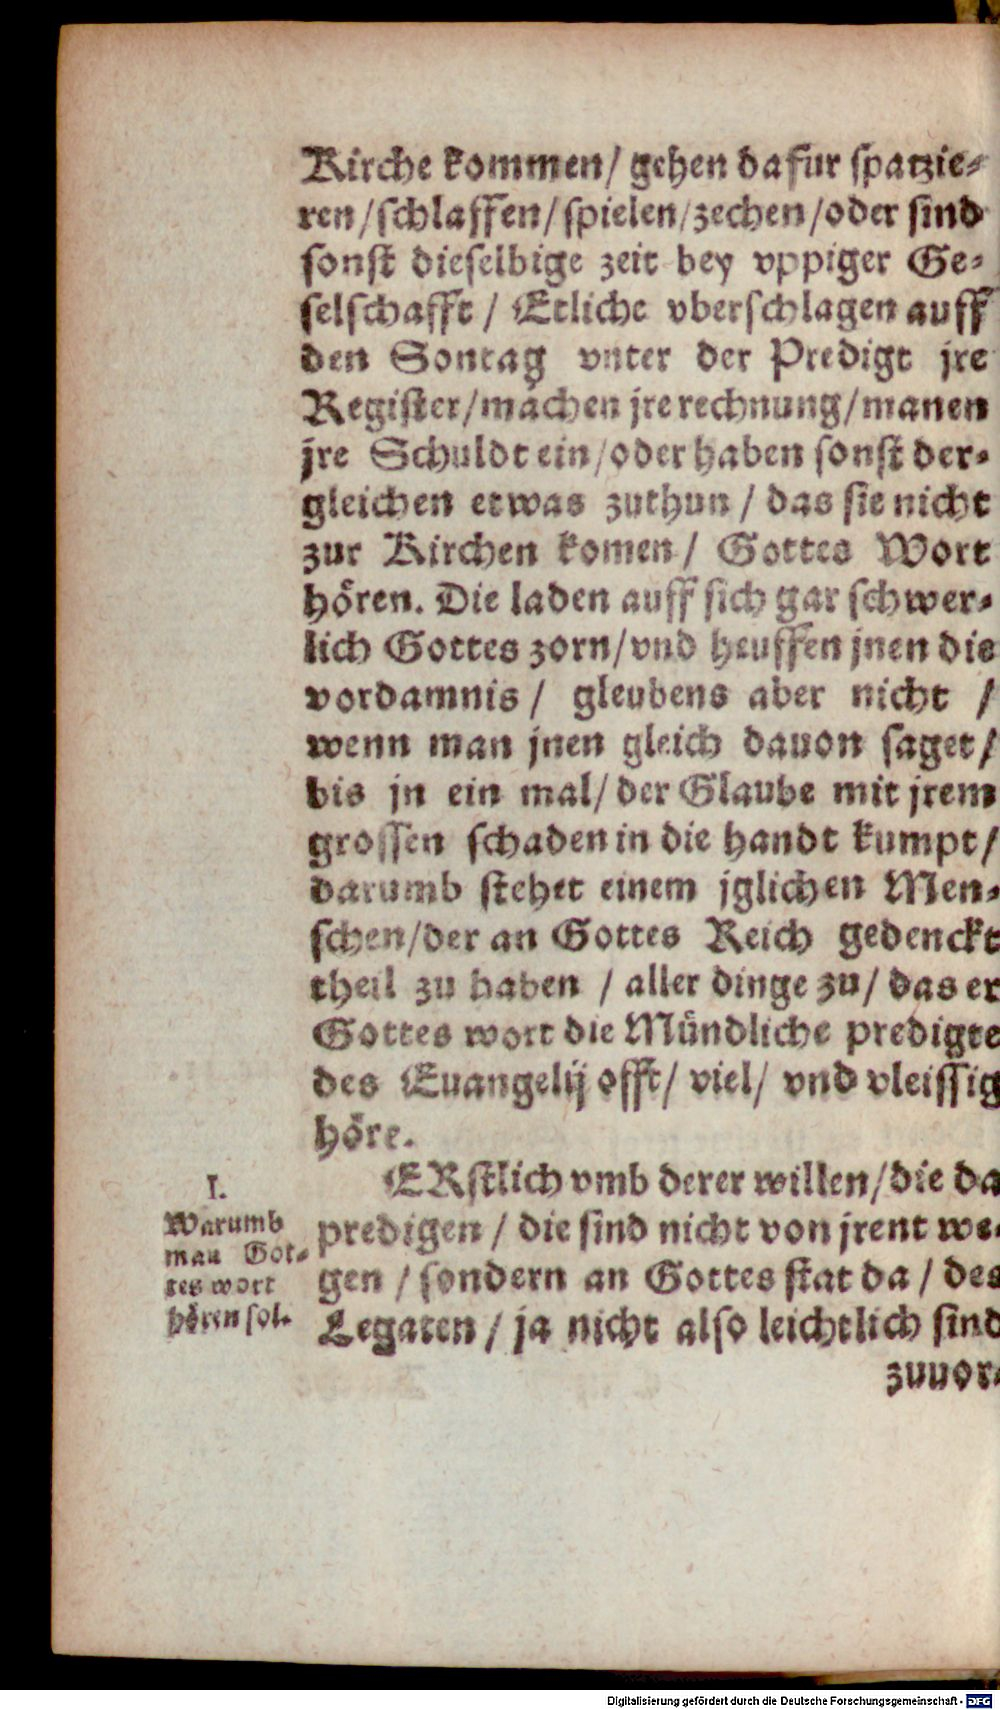 Kirche kommen/ gehen dafur spatzie-
ren/schlaffen/spielen/zechen/oder sind
sonst dieselbige zeit bey vppiger Ge-
selschafft / Etliche vberschlagen auff
den Sontag vnter der Predigt jre
Register/machen jre rechnung/manen
jre Schuldt ein/oder haben sonst der-
gleichen etwas zuthun / das sie nicht
zur Kirchen komen/ Gottes Wort
hören. Die laden auff sich gar schwer-
lich Gottes zorn/vnd heuffen jnen die
vordamnis / gleubens aber nicht /
wenn man jnen gleich dauon saget/
bis jn ein mal/ der Glaube mit jrem
grossen schaden in die handt kumpt/
darumb stehet einem jglichen Men-
schen/der an Gottes Reich gedenckt
theil zu haben / aller dinge zu/ das er
Gottes wort die Mündliche predigte
des Euangelij offt/ viel/ vnd vleissig
höre.
ERstlich vmb derer willen/die da
predigen / die sind nicht von jrent we-
gen / sondern an Gottes stat da / des
Legaten / ja nicht also leichtlich sind
zuuor-
I.
Warumb
man Got-
tes wort
hören sol.
Digitalisierung gefördert durch die Deutsche Forschungsgemeinschaft - DFG